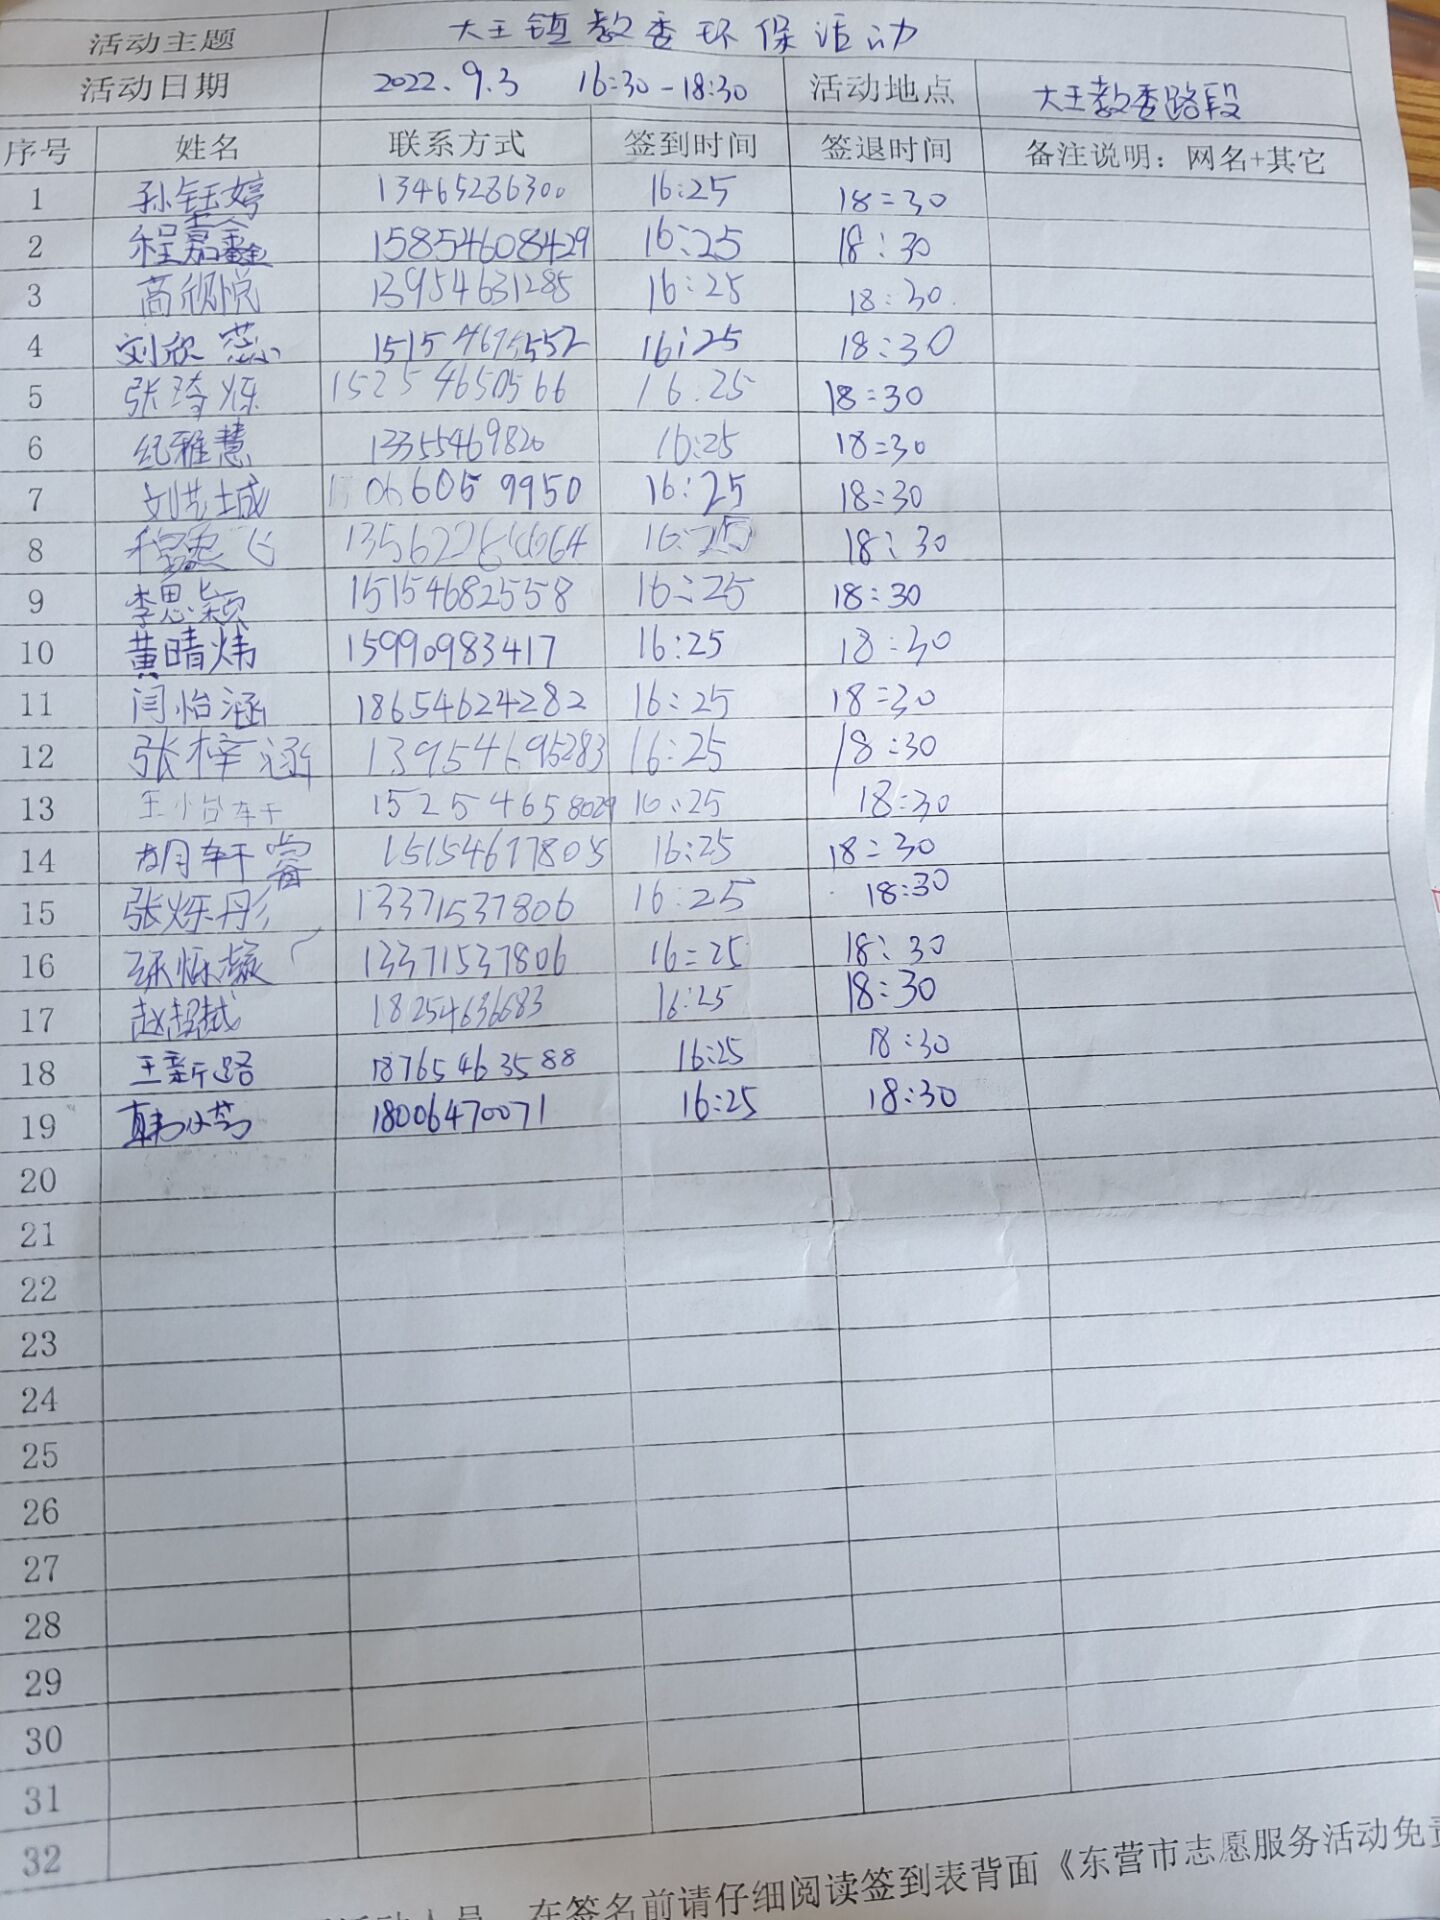 活动主题 大王镇教委环保活动
活动日期 2022.9.3 16:30-18:30 活动地点 大王教委路段
序号 姓名 联系方式 签到时间 签退时间 备注说明：网名+其它
1 孙钰婷 13465286300 16:25 18:30
2 程嘉鑫 15854608429 16:25 18:30
3 商欣悦 13954631285 16:25 18:30
4 刘欣蕊 16:25 18:30
5 张琦烁 15254650566 16:25 18:30
6 纪雅慧 13355469820 16:25 18:30
7 16:25 18:30
8 16:25 18:30
9 李思颖 15154682558 16:25 18:30
10 黄晴炜 15990983417 16:25 18:30
11 闫怡涵 18654624282 16:25 18:30
12 张梓涵 13954695283 16:25 18:30
13 王怡轩 15254658029 16:25 18:30
14 胡轩睿 15154677805 16:25 18:30
15 张烁彤 13371537806 16:25 18:30
16 13371537806 16:25 18:30
17 赵超越 18254636683 16:25 18:30
18 王新路 18765463588 16:25 18:30
19 韩小芳 18006470071 16:25 18:30
20
21
22
23
24
25
26
27
28
29
30
31
32
活动人员，在签名前请仔细阅读签到表背面《东营市志愿服务活动免责